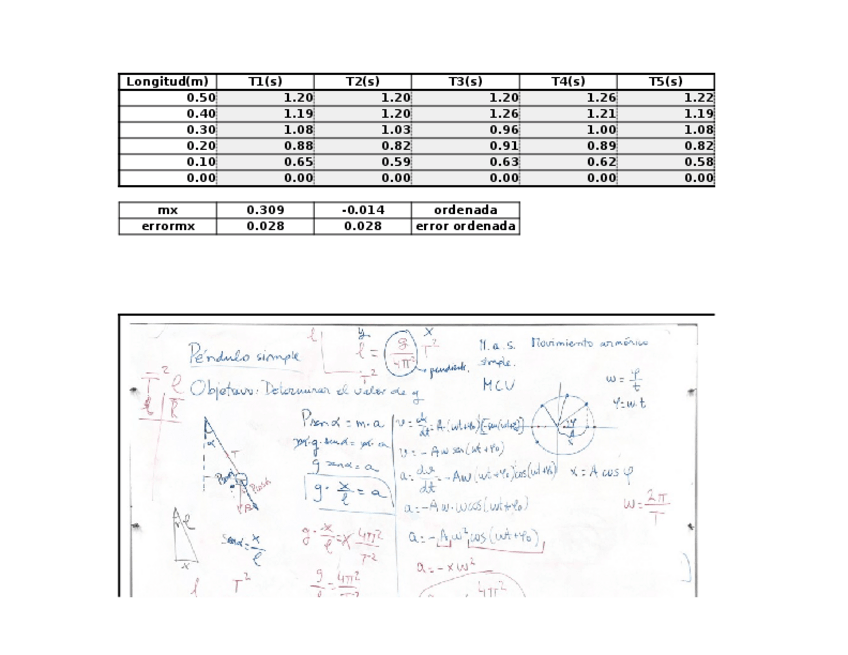 Longitud(m) T1(s) T2(s) T3(s) T4(s) T5(s)
0.50 1.20 1.20 1.20 1.26 1.22
0.40 1.19 1.20 1.26 1.21 1.19
0.30 1.08 1.03 0.96 1.00 1.08
0.20 0.88 0.82 0.91 0.89 0.82
0.10 0.65 0.59 0.63 0.62 0.58
0.00 0.00 0.00 0.00 0.00 0.00
mx 0.309 -0.014 ordenada
errormx 0.028 0.028 error ordenada
Péndulo simple
l
T²
y x
l = g/4π² T²
pendiente.
M.a.s. Movimiento armónico
simple.
MCU
ω = φ/t
φ = ω.t
T² l
Objetivo: Determinar el valor de g
P sen α = m·a
g sen α = a
g · x/l = a
Sen α = x/l
g · x/l = x 4π²/T²
g/l = 4π²/T²
v = - Aω sen(ωt+φ₀)
a = dv/dt = -Aω(ωt+φ₀)'cos(ωt+φ₀)
a = -Aω·ωcos(ωt+φ₀)
a = -Aω²cos(ωt+φ₀)
a = -xω²
4π²
x = A cos φ
ω = 2π/T
l T²